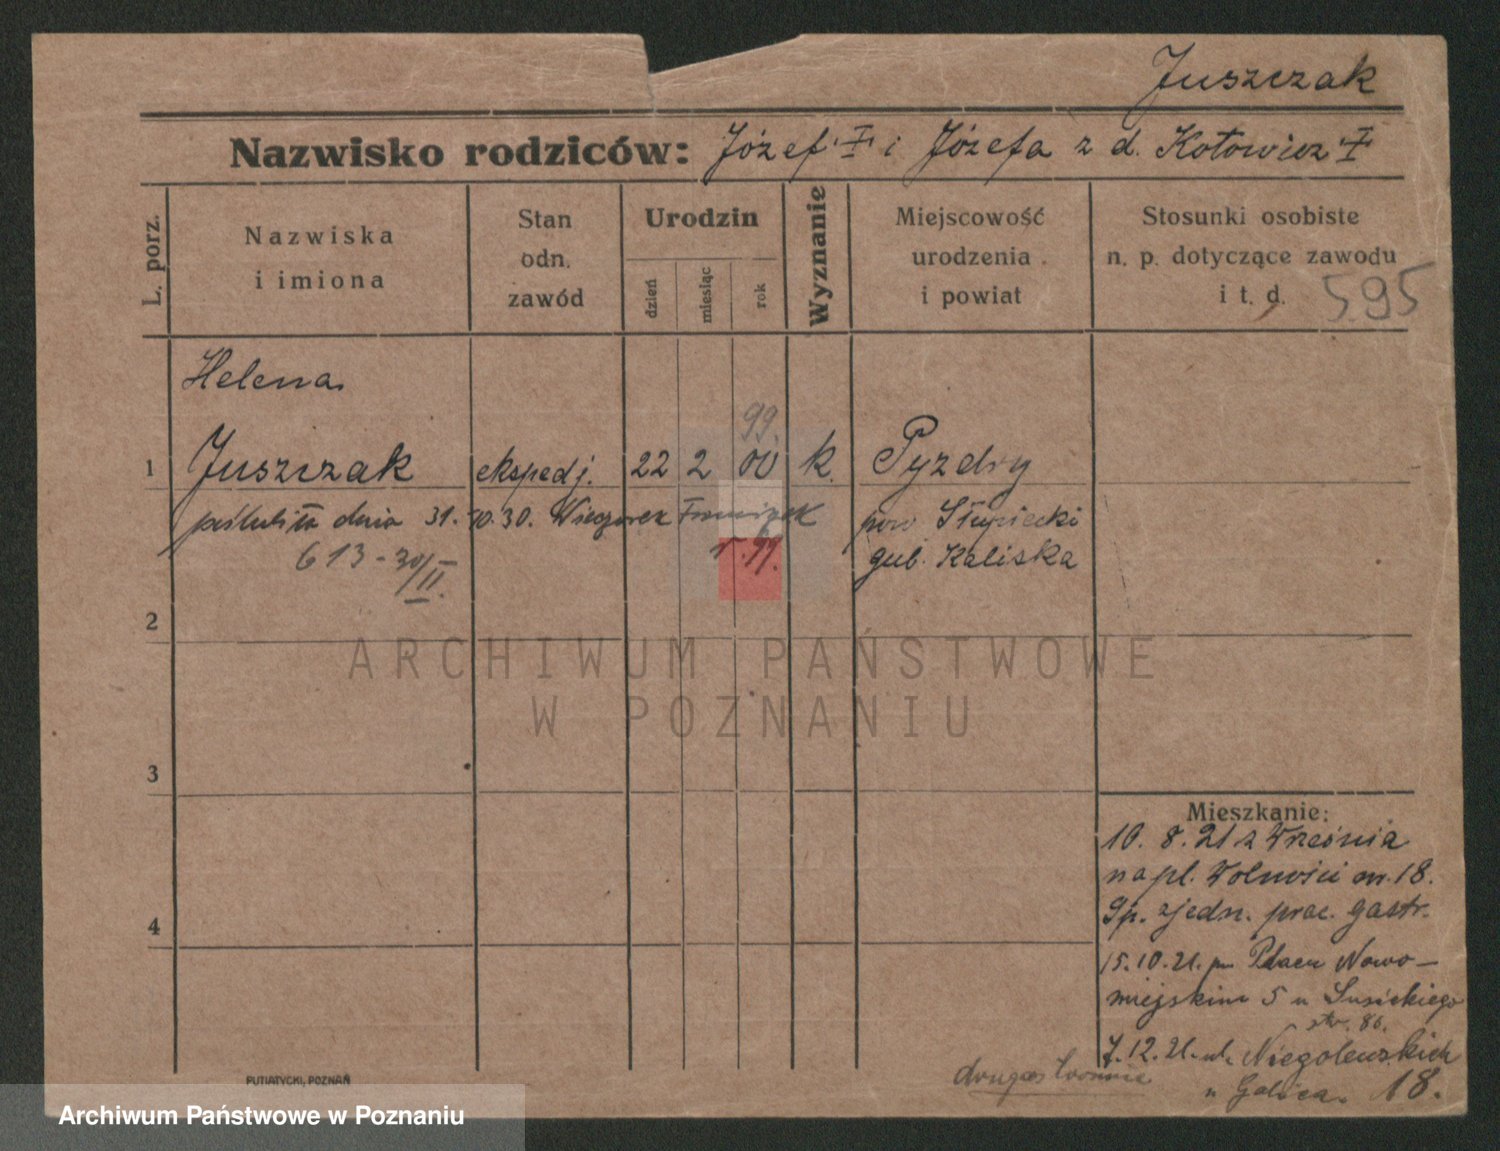 Juszczak
Nazwisko rodziców: Józef I i Józefa z d. Kotowicz I
L. porz.
Nazwiska
i imiona
Stan
odn.
zawód
Urodzin
dzień
miesiąc
rok
Wyznanie
Miejscowość
urodzenia
i powiat
Stosunki osobiste
n. p. dotyczące zawodu
i t. d.
595
Helena
99.
1 Juszczak ekspedj. 22 2 00 k. Pyzdry
dnia 31.10.30. Wieczorek pow Słupiecki
613-30/II. gub. Kaliska
2
3
4
Mieszkanie:
10. 8. 21 z Września
na pl. Wolności nr. 18.
Sp. zjedn. prac. gastr.
15.10.21. Placu Nowo-
miejskim 5 u
str. 86.
7.12.21. ul. Niegolewskich
18.
PUTIATYCKI, POZNAŃ
ARCHIWUM PAŃSTWOWE
W POZNANIU
Archiwum Państwowe w Poznaniu